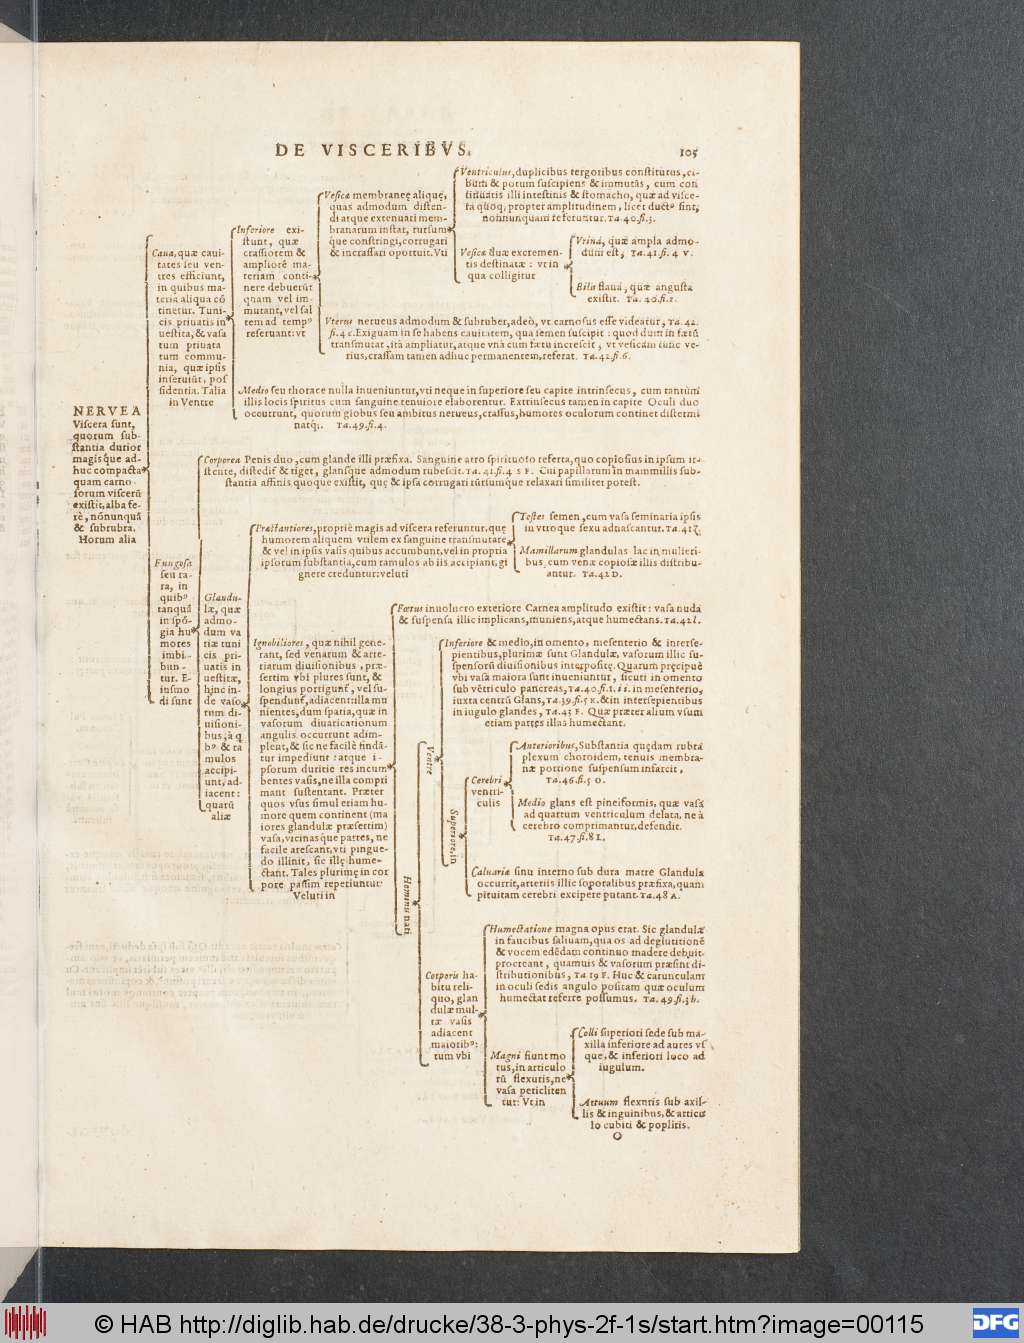 DE VISCERIBVS.
105
NERVEA
Viscera sunt,
quorum sub-
stantia durior
magisque ad-
huc compacta
quam carno-
sorum viscerū
existit, alba fe-
rè, nōnunquā
& subrubra.
Horum alia
Caua, quæ caui-
tates seu ven-
tres efficiunt,
in quibus ma-
teria aliqua cō
tinetur. Tuni-
cis priuatis in
uestita, & vasa
tum priuata
tum commu-
nia, quæ ipsis
inseruiūt, pos
sidentia. Talia
in Ventre
Inferiore exi-
stunt, quæ
crassiorem &
ampliorē ma-
teriam conti-
nere debuerūt
quam vel im-
mutant, vel sal
tem ad tempꝰ
reseruant: vt
Vesicæ membraneę alique,
quas admodum disten-
di atque extenuati mem-
branarum instar, rursum
que constringi, corrugari
& incrassari oportuit. Vti
Ventriculus, duplicibus tergoribus constitutus, ci-
bum & potum suscipiens & immutās, cum con
tinuatis illi intestinis & stomacho, quæ ad visce-
ra quoq; propter amplitudinem, licet ductꝰ sint,
nonnunquam referuntur. Ta. 40. fi. 3.
Vesicæ duæ excremen-
tis destinatæ: vt in
qua colligitur
Vrina, quæ ampla admo-
dum est, Ta. 41. fi. 4 v.
Bilis flaua, quæ angusta
existit. Ta. 40. fi. 1.
Vterus nerueus admodum & subruber, adeò, vt carnosus esse videatur, Ta. 42.
fi. 4 c. Exiguam in se habens cauitatem, qua semen suscipit: quod dum in fœtū
transmutat, ita ampliatur, atque vnà cum fœtu increscit, vt vesicam tunc ve-
rius, crassam tamen adhuc permanentem, referat. Ta. 42. fi. 6.
Medio seu thorace nulla inueniuntur, vti neque in superiore seu capite intrinsecus, cum tantùm
illis locis spiritus cum sanguine tenuiore elaborentur. Extrinsecus tamen in capite Oculi duo
occurrunt, quorum globus seu ambitus nerueus, crassus, humores oculorum continet distermi
natq;. Ta. 49. fi. 4.
Fungosa
seu ra-
ra, in
quibꝰ
tanquā
in spō-
gia hu
mores
imbi-
bun-
tur. E-
iusmo
di sunt
Corporea Penis duo, cum glande illi præfixa. Sanguine atro spirituoso referta, quo copiosius in ipsum ir-
ruente, distēdit & riget, glansque admodum rubescit. Ta. 41. fi. 4 s F. Cui papillarum in mammillis sub-
stantia affinis quoque existit, quę & ipsa corrugari rursumque relaxari similiter potest.
Glandu-
læ, quæ
admo-
dum va
riæ tuni
cis pri-
uatis in
uestitæ,
hinc in-
de vaso
rum di-
uisioni-
bus, à q̄
bꝰ & ra
mulos
accipi-
unt, ad-
iacent:
quarū
aliæ
Præstantiores, propriè magis ad viscera referuntur, quę
humorem aliquem vtilem ex sanguine transmutare
& vel in ipsis vasis quibus accumbunt, vel in propria
ipsorum substantia, cum ramulos ab iis accipiant, gi
gnere creduntur: veluti
Testes semen, cum vasa seminaria ipsis
in vtroque sexu adnascantur. Ta. 41 ζ.
Mamillarum glandulas lac in mulieri-
bus, cum venæ copiosæ illis distribu-
antur. Ta. 42 D.
Ignobiliores, quæ nihil gene-
rant, sed venarum & arte-
riarum diuisionibus, præ-
sertim vbi plures sunt, &
longius porrigunt, vel su-
spendunt, adiacent: illa mu
nientes, dum spatia, quæ in
vasorum diuaricationum
angulis occurrunt adim-
pleat, & sic ne facilè findā-
tur impediunt: atque i-
psorum duritie res incum
bentes vasis, ne illa compri
mant sustentant. Præter
quos vsus simul etiam hu-
more quem continent (ma
iores glandulæ præsertim)
vasa, vicinasque partes, ne
facile arescant, vti pingue-
do illinit, sic illę hume-
ctant. Tales plurimę in cor
pore passim reperiuntur:
Veluti in
Fœtus inuolucro exteriore Carnea amplitudo existit: vasa nuda
& suspensa illic implicans, muniens, atque humectans. Ta. 42 l.
Hominis nati
Ventre
Inferiore & medio, in omento, mesenterio & interse-
pientibus, plurimæ sunt Glandulæ, vasorum illic su-
spensorū diuisionibus interpositę. Quarum pręcipuè
vbi vasa maiora sunt inueniuntur, sicuti in omento
sub vētriculo pancreas, Ta. 40. fi. 1. i i. in mesenterio,
iuxta centrū Glans, Ta. 39. fi. 5 K. & in intersepientibus
in iugulo glandes, Ta. 43 F. Quæ præter alium vsum
etiam partes illas humectant.
Superiore, in
Cerebri
ventri-
culis
Anterioribus, Substantia quędam rubra
plexum choroidem, tenuis membra-
næ portione suspensum infarcit,
Ta. 46. fi. 5 O.
Medio glans est pineiformis, quæ vasa
ad quartum ventriculum delata, ne à
cerebro comprimantur, defendit.
Ta. 47. fi. 8 L.
Caluariæ sinu interno sub dura matre Glandula
occurrit, arteriis illic soporalibus præfixa, quam
pituitam cerebri excipere putant. Ta. 48 A.
Corporis ha-
bitu reli-
quo, glan
dulæ mul-
tæ vasis
adiacent
maioribꝰ:
tum vbi
Humectatione magna opus erat. Sic glandulæ
in faucibus saliuam, qua os ad deglutitionē
& vocem edēdam continuo madere debuit
procreant, quamuis & vasorum præsint di-
stributionibus, Ta 19 F. Huc & carunculam
in oculi sedis angulo positam quæ oculum
humectat referre possumus. Ta. 49. fi. 3 b.
Magni fiunt mo
tus, in articulo
rū flexuris, ne
vasa pericliten
tur: Vt in
Colli superiori sede sub ma-
xilla inferiore ad aures vs
que, & inferiori loco ad
iugulum.
Artuum flexuris sub axil-
lis & inguinibus, & articu
lo cubiti & poplitis.
O
© HAB http://diglib.hab.de/drucke/38-3-phys-2f-1s/start.htm?image=00115
DFG